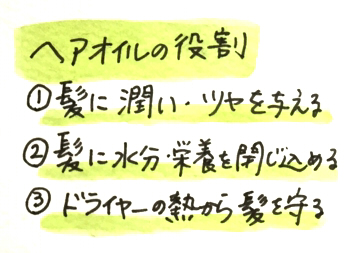 ヘアオイルの役割
①髪に潤い・ツヤを与える
②髪に水分・栄養を閉じ込める
③ドライヤーの熱から髪を守る